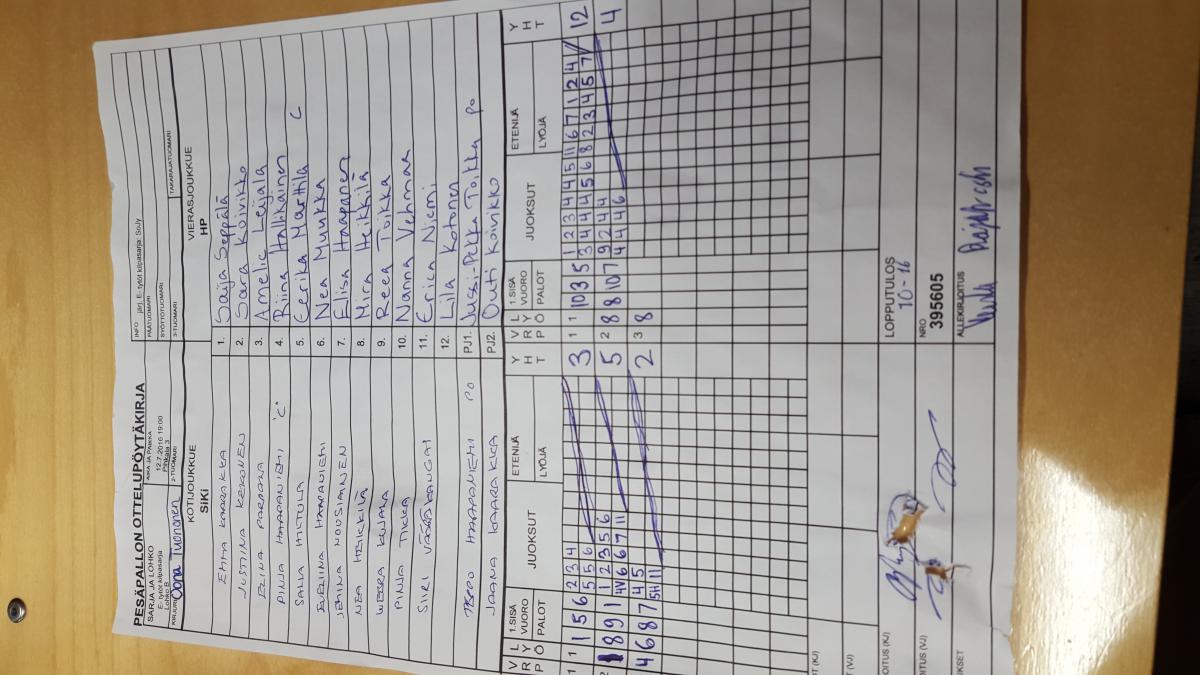 PESÄPALLON OTTELUPÖYTÄKIRJA
SARJA JA LOHKO
E- tytöt kilpasarja
Lohko B
AIKA JA PAIKKA
12.7.2016 19:00
Pihkala 3
KIRJURI Oona Tuononen
2-TUOMARI
INFO järj. E- tytöt kilpasarja: SoJy
PÄÄTUOMARI
SYÖTTÖTUOMARI
3-TUOMARI
TAKARAJATUOMARI
KOTIJOUKKUE
SiKi
VIERASJOUKKUE
HP
EMMA KAARAKKA 1. Saija Seppälä
JUSTIINA KEKONEN 2. Sara Koivikko
ELINA PARTANA 3. Amelie Leijala
PINJA HAAPANIEMI 'C' 4. Riina Hallikainen
SALLA HILTULA 5. Eerika Marttila C
EVELIINA HAAPANIEMI 6. Nea Muukka
JEMINA NOUSIAINEN 7. Elisa Haapanen
NEA HEIKKILÄ 8. Mira Heikkilä
9. Reea Toikka
PINJA TIKKA 10. Nanna Vehmaa
SIIRI 11. Erica Niemi
12. Lila Kotonen
TEPPO HAAPANIEMI PO PJ1. Jussi-Pekka Toikka po
JAANA KAARAKKA PJ2. Outi Koivikko
V R L Y P Ö 1.SISÄ VUORO PALOT JUOKSUT ETENIJÄ LYÖJÄ Y H T
V R L Y P Ö 1.SISÄ VUORO PALOT JUOKSUT ETENIJÄ LYÖJÄ Y H T
1 1 1 5 6 2 3 4 3
5 5 6
1 1 10 3 5 1 2 3 4 4 5 11 6 7 1 2 4 12
3 4 4 4 5 6 8 2 3 4 5 7
8 9 1 1 2 3 5 6 5
4V 6 6 7 11
2 8 8 10 7 9 2 4 4 4
4 4 4 6
4 6 8 7 4 5 2
5H 11
3 8
LOPPUTULOS
10-16
NRO
395605
ALLEKIRJOITUS